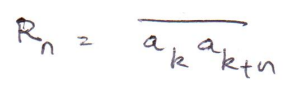 Rₙ = \overline{aₖ aₖ₊ₙ}